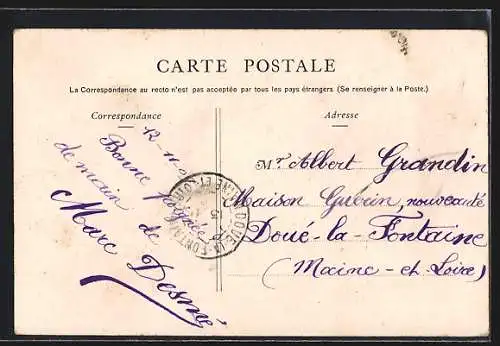 CARTE POSTALE
La Correspondance au recto n'est pas acceptée par tous les pays étrangers (Se renseigner à la Poste.)
Correspondance
Adresse
12-11-
Bonne poignée
de main de
Marc Desmé
Mr Albert Grandin
Maison Guérin, nouveauté
Doué-la-Fontaine
(Maine-et-Loire)